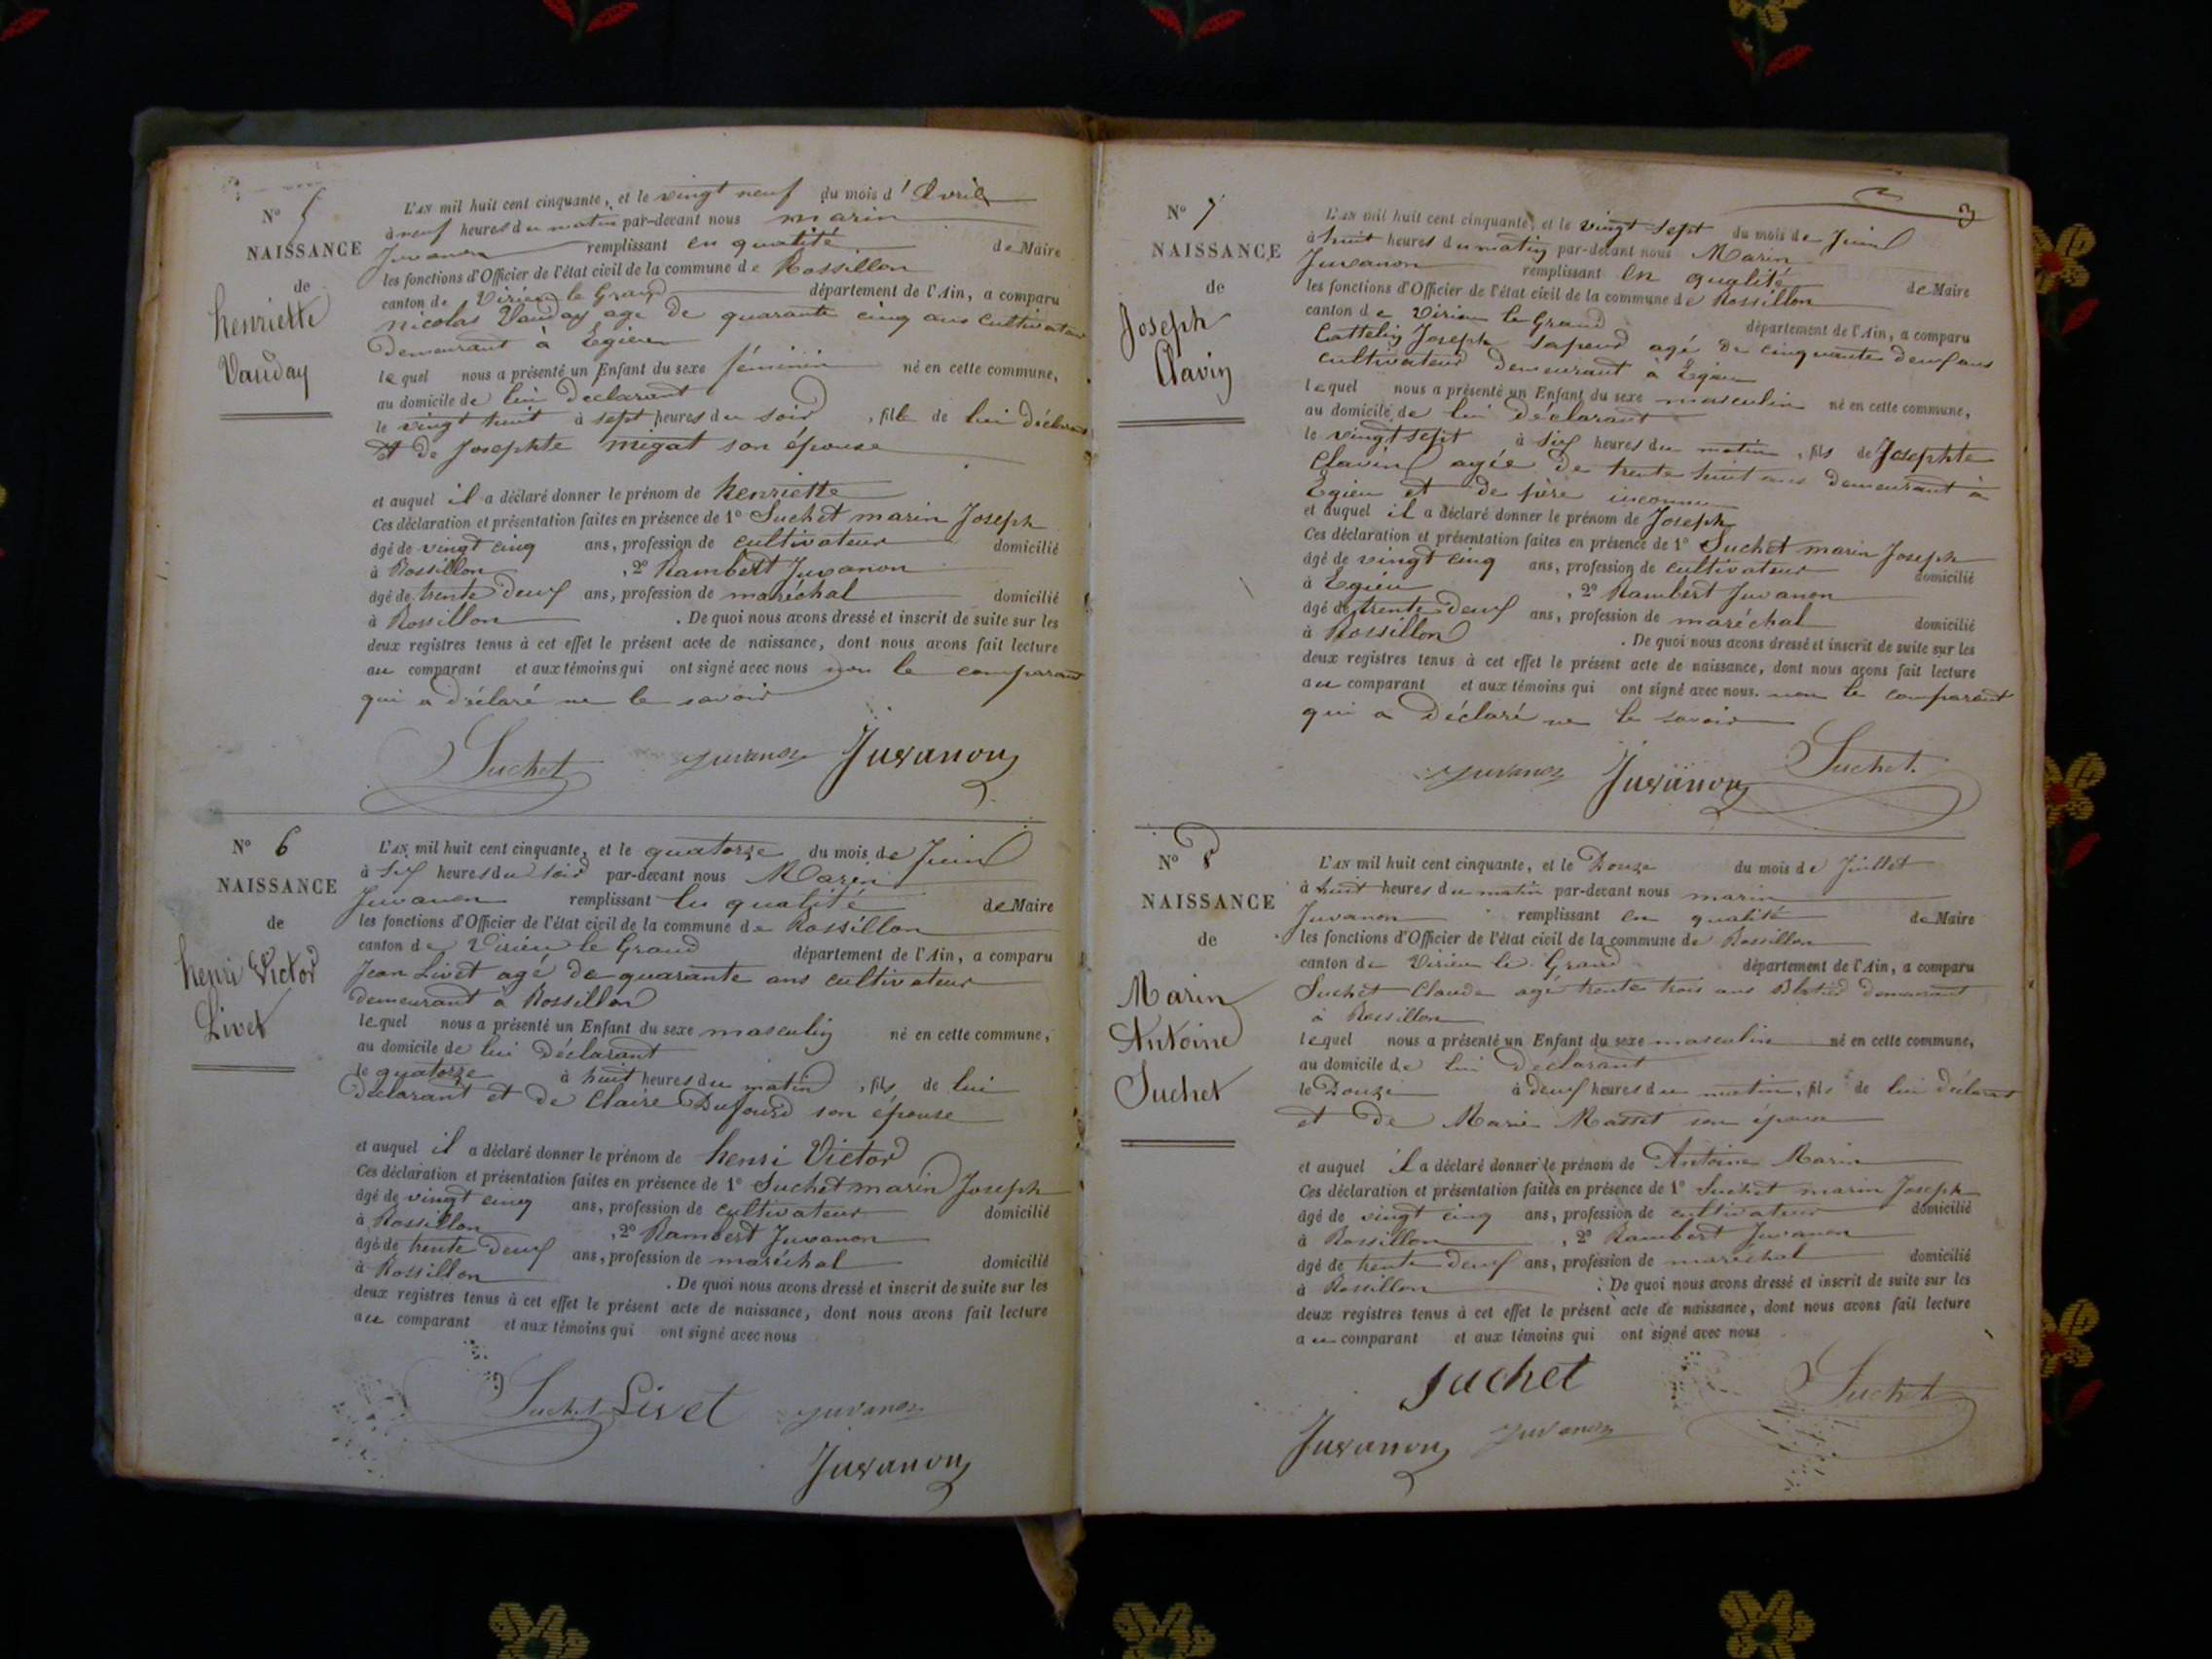 N° 5
NAISSANCE
de
henriette
Vauday
L'AN mil huit cent cinquante, et le vingt neuf du mois d'Avril
à neuf heures du matin par-devant nous marin
Juvanon remplissant en qualité de Maire
les fonctions d'Officier de l'état civil de la commune de Rossillon
canton de Virieu le Grand département de l'Ain, a comparu
nicolas Vauday agé de quarante cinq ans Cultivateur
demeurant à Egieu
lequel nous a présenté un Enfant du sexe féminin né en cette commune,
au domicile de lui déclarant
le vingt huit à sept heures du soir, fille de lui déclarant
et de Josephte migat son épouse
et auquel il a déclaré donner le prénom de henriette
Ces déclaration et présentation faites en présence de 1° Suchet marin Joseph
âgé de vingt cinq ans, profession de cultivateur domicilié
à Rossillon, 2° Rambert Juvanon
âgé de trente deux ans, profession de maréchal domicilié
à Rossillon. De quoi nous avons dressé et inscrit de suite sur les
deux registres tenus à cet effet le présent acte de naissance, dont nous avons fait lecture
au comparant et aux témoins qui ont signé avec nous non le comparant
qui a déclaré ne le savoir
Suchet Juvanon Juvanon
N° 6
NAISSANCE
de
henri Victor
Livet
L'AN mil huit cent cinquante, et le quatorze du mois de Juin
à six heures du soir par-devant nous Marin
Juvanon remplissant en qualité de Maire
les fonctions d'Officier de l'état civil de la commune de Rossillon
canton de Virieu le Grand département de l'Ain, a comparu
Jean Livet agé de quarante ans cultivateur
demeurant à Rossillon
lequel nous a présenté un Enfant du sexe masculin né en cette commune,
au domicile de lui déclarant
le quatorze à huit heures du matin, fils de lui
déclarant et de Claire Dufourd son épouse
et auquel il a déclaré donner le prénom de henri Victor
Ces déclaration et présentation faites en présence de 1° Suchet marin Joseph
âgé de vingt cinq ans, profession de cultivateur domicilié
à Rossillon, 2° Rambert Juvanon
âgé de trente deux ans, profession de maréchal domicilié
à Rossillon. De quoi nous avons dressé et inscrit de suite sur les
deux registres tenus à cet effet le présent acte de naissance, dont nous avons fait lecture
au comparant et aux témoins qui ont signé avec nous
Suchet Livet Juvanon
Juvanon
3
N° 7
NAISSANCE
de
Joseph
Clavin
L'AN mil huit cent cinquante, et le vingt sept du mois de Juin
à huit heures du matin par-devant nous Marin
Juvanon remplissant en qualité de Maire
les fonctions d'Officier de l'état civil de la commune de Rossillon
canton de Virieu le Grand département de l'Ain, a comparu
Cattelin Joseph Sapeur agé de cinquante deux ans
cultivateur demeurant à Egieu
lequel nous a présenté un Enfant du sexe masculin né en cette commune,
au domicile de lui déclarant
le vingt sept à six heures du matin, fils de Josephte
Clavin agée de trente huit ans demeurant à
Egieu et de père inconnu
et auquel il a déclaré donner le prénom de Joseph
Ces déclaration et présentation faites en présence de 1° Suchet marin Joseph
âgé de vingt cinq ans, profession de cultivateur domicilié
à Egieu, 2° Rambert Juvanon
âgé de trente deux ans, profession de maréchal domicilié
à Rossillon. De quoi nous avons dressé et inscrit de suite sur les
deux registres tenus à cet effet le présent acte de naissance, dont nous avons fait lecture
au comparant et aux témoins qui ont signé avec nous. non le comparant
qui a déclaré ne le savoir
Juvanon Juvanon Suchet
N° 8
NAISSANCE
de
Marin
Antoine
Suchet
L'AN mil huit cent cinquante, et le Douze du mois de Juillet
à huit heures du matin par-devant nous marin
Juvanon remplissant en qualité de Maire
les fonctions d'Officier de l'état civil de la commune de Rossillon
canton de Virieu le Grand département de l'Ain, a comparu
Suchet Claude agé trente trois ans demeurant
à Rossillon
lequel nous a présenté un Enfant du sexe masculin né en cette commune,
au domicile de lui déclarant
le Douze à deux heures du matin, fils de lui déclarant
et de Marie Masset son épouse
et auquel il a déclaré donner le prénom de Antoine Marin
Ces déclaration et présentation faites en présence de 1° Suchet marin Joseph
âgé de vingt cinq ans, profession de cultivateur domicilié
à Rossillon, 2° Rambert Juvanon
âgé de trente deux ans, profession de maréchal domicilié
à Rossillon. De quoi nous avons dressé et inscrit de suite sur les
deux registres tenus à cet effet le présent acte de naissance, dont nous avons fait lecture
au comparant et aux témoins qui ont signé avec nous
Suchet Suchet
Juvanon Juvanon